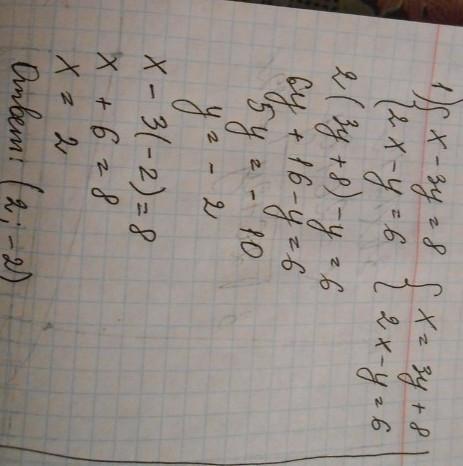 1) { x - 3y = 8 { x = 3y + 8
{ 2x - y = 6 { 2x - y = 6
2(3y + 8) - y = 6
6y + 16 - y = 6
5y = - 10
y = - 2
x - 3(-2) = 8
x + 6 = 8
x = 2
Ответ: (2; -2)